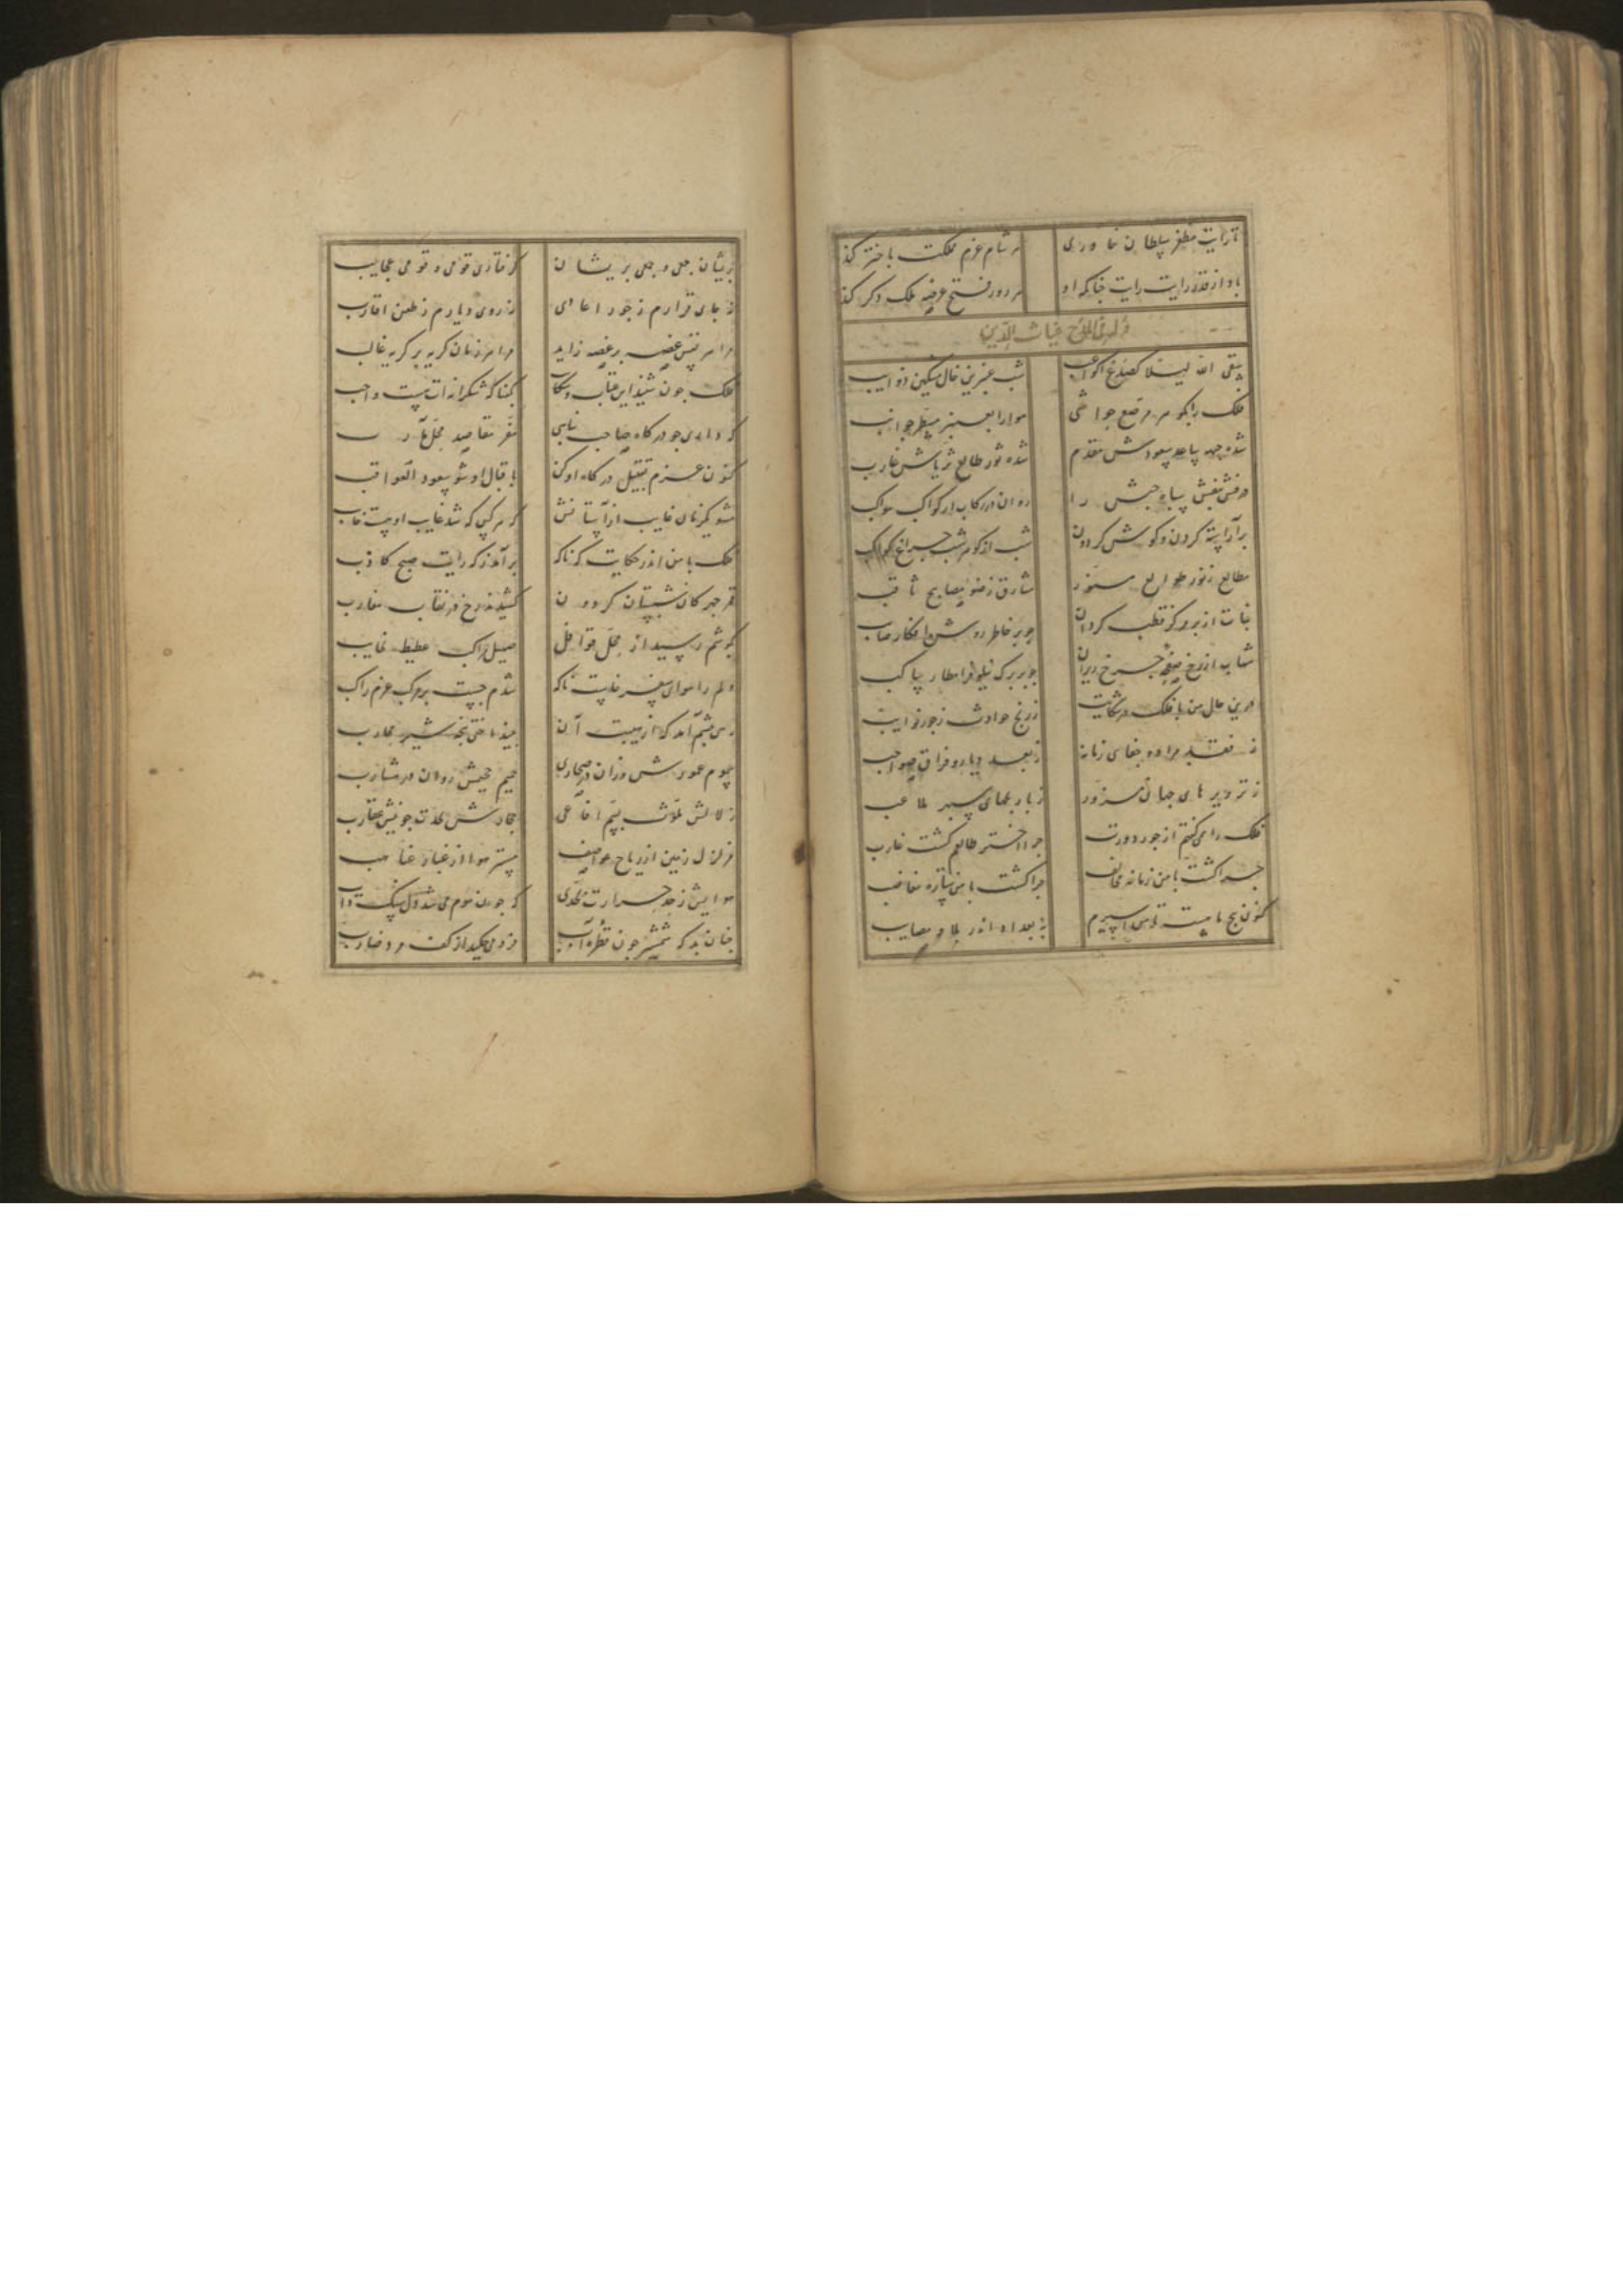 تا رایت مظفر سلطان خاوری هر شام عزم مملکت باختر کند
بادا ز قدر رایت رایت چنانکه او هر روز فتح عرصه ملک دگر کند
غیاث الدین
سقی الله لیلا کصدغ الکواعب شب عنبرین خال مشکین ذوایب
فلک را بکوهر مرصع حواشی هوا را بعنبر معطر جوانب
درفش بنفش سپاه حبش را روان در رکاب از کواکب مواکب
برآراسته کردن و کوش کردون شب از کوهر شب چراغ کواکب
شده جبهه با سعودش مقدم شده ثور طالع ثریاش غارب
مطالع ز نور طوالع منور مشارق ز ضوء مصابیح ثاقب
بنات از بر مرکز قطب کردان چو بر خاطر روشن افکار صایب
شهاب از رخ صفحه چرخ ریزان چو بر برک نیلوفر امطار ساکب
درین حال من با فلک در شکایت ز رنج حوادث ز جور نوایب
ز فقد مراد و جفای زمانه ز بعد دیار و فراق صواحب
ز تزویرهای جهان مزور ز بازیهای سپهر ملاعب
فلک را همی گفتم از جور دورت چرا اختر طالعم گشت غارب
چرا گشت با من زمانه مخالف چرا گشت با من ستاره مغاضب
کنون پنج ماهست تا من اسیرم به بغداد اندر بلا و مصایب
پریشان جمعی و جمعی پریشان گرفتار قومی و قومی عجایب
نه جای قرارم ز جور اعادی نه روی دیارم ز طعن اقارب
مرا هر نفس غصه بر غصه زاید مرا هر زمان گریه بر گریه غالب
فلک چون شنید این عتاب و شکایت
که داری چو درگاه صاحب پناهی مقر مقاصد محل مآرب
کنون عزم تقبیل درگاه او کن باقبال او شو سعود العواقب
مشو یکزمان غایب از آستانش که هر کس که شد غایب اوست خایب
فلک با من اندر حکایت که ناگه برآمد ز که رایت صبح کاذب
قمر چهرگان شبستان گردون کشیدند رخ در نقاب مغارب
بگوشم رسید از محل قوافل صهیل مراکب غطیط نجایب
دلم را هوای سفر خاست ناگه شدم چست بر مرکب عزم راکب
رهی پیشم آمد که از هیبت آن بیفتد ز پنجه شیر محارب
سموم عموش وزان در صحاری حمیم جحیمش روان در مشارب
زلالش ملوث بسم افاعی حجارش محدد چو نیش عقارب
هوایش ز حد حرارت بحدی که چون موم می شد دل سنگ ذایب
چنان بد که شمشیر چون قطره آب فرو میچکید از کف مرد ضارب